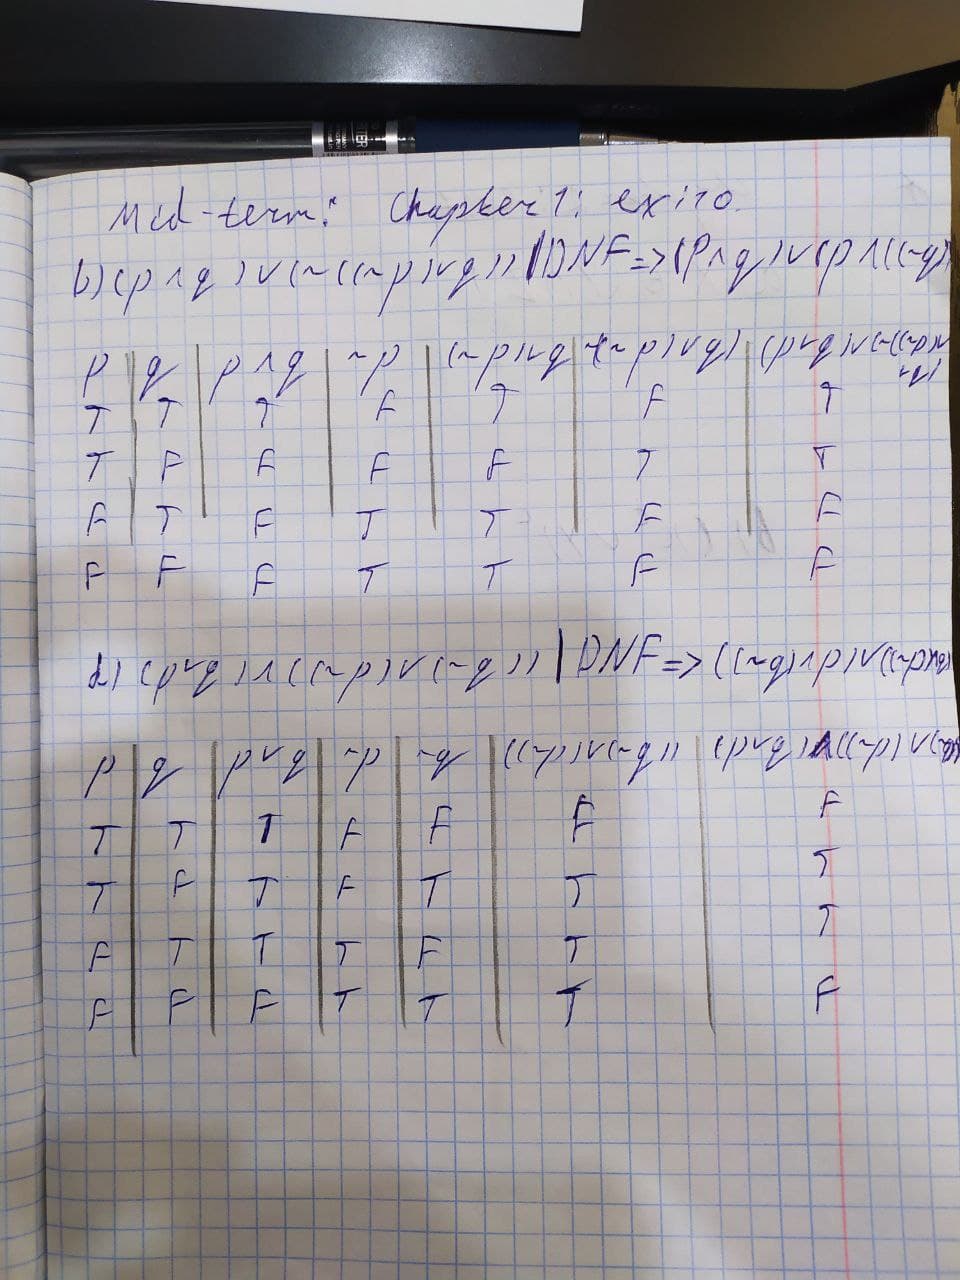 Mid-term: Chapter 1: ex: 10.
b) (p ∧ q) ∨ (~((~p) ∨ q)) | DNF => (P ∧ q) ∨ (p ∧ ((~q)
p | q | p ∧ q | ~p | (~p) ∨ q | ~(~p) ∨ q) | (p ∨ q) ∨ (~((~p) ∨
∨q)
T T T F T F T
T F F F F T T
F T F T T F F
F F F T T F F
d) (p ∨ q) ∧ ((~p) ∨ (~q)) | DNF => ((~q) ∧ p) ∨ ((~p) ∧ q)
p | q | p ∨ q | ~p | ~q | ((~p) ∨ (~q)) | (p ∨ q) ∧ ((~p) ∨ (~q)
T T T F F F F
T F T F T T T
F T T T F T T
F F F T T T F